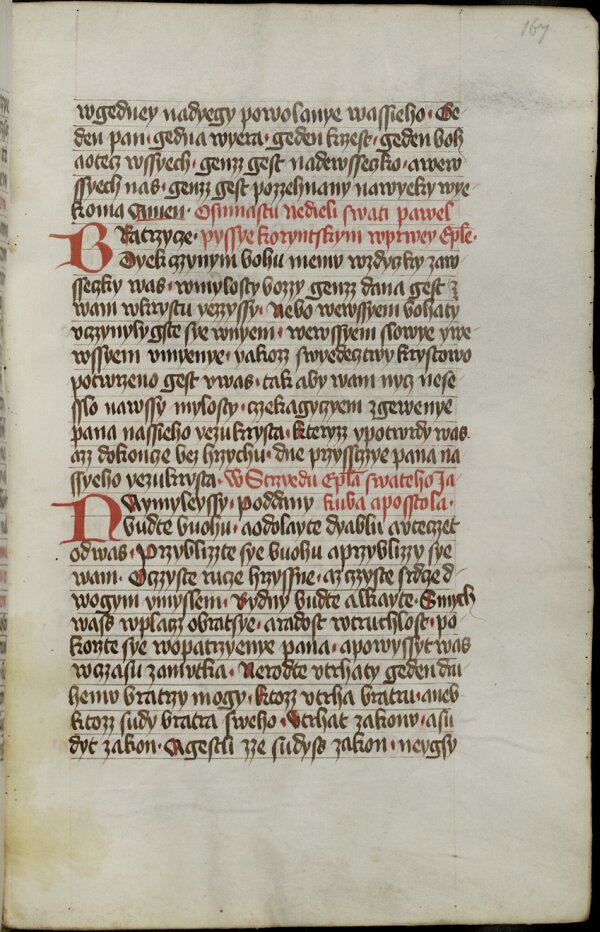 167
wgedney nadyegy powolanye wassieho · Ge
den pan · gedna wyera · geden krzest · geden boh
aotecz wssyech · genzz gest nadewsseczko · awew
ssyech nas · genzz gest pozzehnany nawyeky wye
koma Amen · Osmnastu nedieli swati pawel
BRatrzyçe · pyssye koryntskym wprwey Eple ·
Dyek czynym bohu memu wzdyczky zaw
sseczky was · wmylosty bozzy genzz dana gest
wam wkrystu yezzyssy · Nebo wewssyem bohaty
vczynyly gste sye wnyem · wewssyem slowye ywe
wssyem vmyenye · yakozz swyedecztwy krystowo
potwrzeno gest vwas · tak aby wam nycz nese
sslo nawssy mylosty · czekagyczyem zgewenye
pana nassieho yezukrysta · kteryzz ypotwrdy was
azz dokoncze bez hrzychu · dne przysstzye pana na
ssyeho yezukrysta · W Strzyedu Epla swateho Ja
NAymyleyssy · poddany kuba aposstola ·
budte buohu · aodolayte dyablu avteczet
odwas · Przyblizzte sye buohu aprzyblizzy sye
wam · Oczyste rucze hrzyssne · azczyste srdcze d
wogym vmyslem · Bydny budte alkayte · Smych
wass wplacz obratsye · aradost wtruchlost · po
korzte sye wopatrzyenye pana · apowyssyt was
wczasu zamutka · Nerodte vtrhaty geden dru
hemu bratrzy mogy · ktozz vtrha bratru · aneb
ktozz sudy bratra sweho · Vtrhat zakonu · asu
dyt zakon · Agestli zze sudyss zakon · neygsy